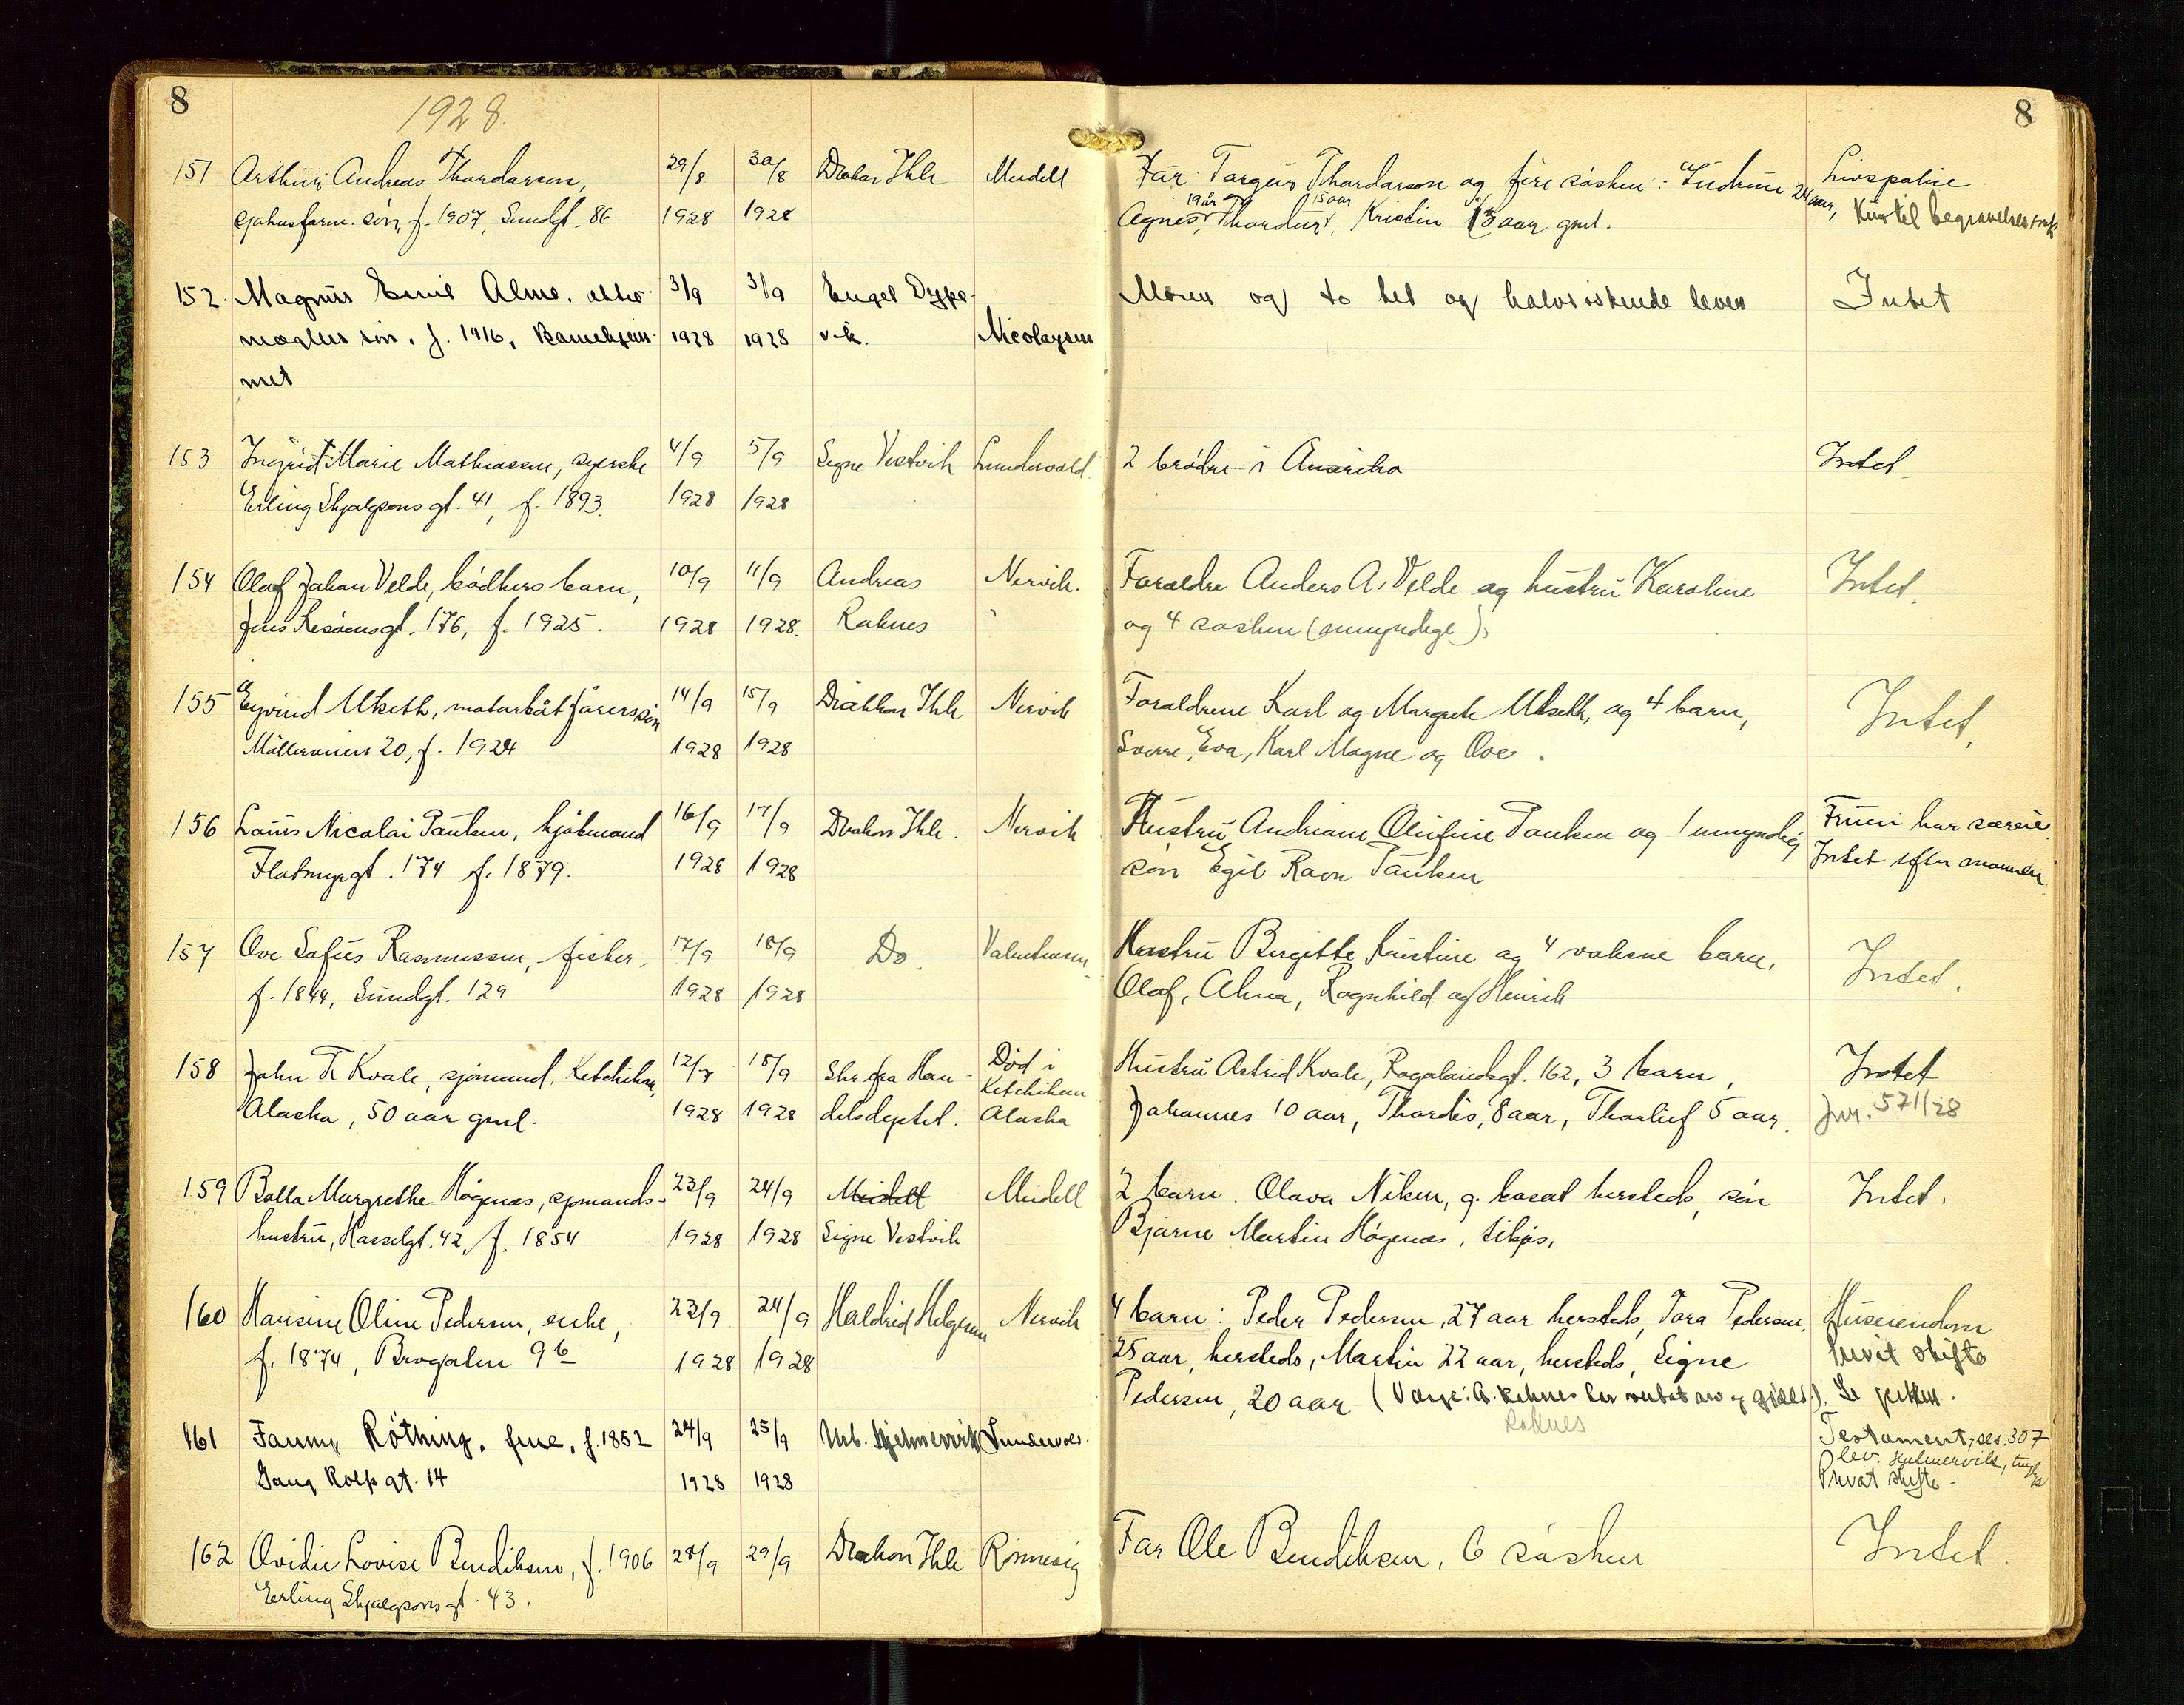 8
1928.
8
151 Arthur Andreas Thordarson, 29/8 30/8 Drakon Ihle Meidell Far Torgeir Thordarson og fire søsken: Gudrun 24 aar, Livspolise.
sjøhusform. søn, f. 1907, Sundgt. 86 1928 1928 19 år og 15 aar Agnes, Thordur, Kristin 13 aar gml. Kun til begravelsesomk
152. Magnus Emil Alme, 3/9 3/9 Engel Dype- Moren og to hel og halvsøskende lever Intet
mægler søn, f. 1916, Barnehjem- 1928 1928 vik. Nicolaysen
met
153 Ingrid Marie Mathiassen, syerske 4/9 5/9 Signe Vestvik Sundervold. 2 brødre i Amerika Intet
Erling Skjalgsons gt. 41, f. 1893. 1928 1928
154 Olaf Johan Velde, bødkers barn, 10/9 11/9 Andreas Nervik. Foræeldre Anders A. Velde og hustru Karoline Intet.
Jens Risøensgt. 176, f. 1925. 1928 1928. Raknes og 4 søsken (umyndige).
155 Eyvind Utseth, motorbåtførers søn 14/9 15/9 Dråkon Ihle Nervik Forældrene Karl og Margrete Utseth, og 4 barn, Intet.
Mølleveien 20, f. 1924 1928 1928 Sverre, Eva, Karl Magne og Ove.
156 Louis Nicolai Paulsen, kjøbmand 16/9 17/9 Drakon Ihle. Nervik Hustru Andriane Olufine Paulsen og 1 umyndig Fruen har særeie.
Flatmyrgt. 174 f. 1879. 1928 1928 søn Egil Ravn Paulsen Intet efter mannen
157 Ove Sofus Rasmussen, fisker, 17/9 18/9 Do. Valentinsen Hustru Birgitte Kristine og 4 voksne barn, Intet.
f. 1844, Sundgt. 129 1928 1928 Olaf, Alma, Ragnhild og Henrik
158 John T. Kvale, sjømand, Ketchikan, 12/7 18/9 Skr fra Han- Død i Ketchikan Hustru Astrid Kvale, Rogalandsgt. 162, 3 barn, Intet
Alaska, 50 aar gml. 1928 1928 delsdeptet. Alaska Johannes 10 aar, Thordis, 8 aar, Thorlief 5 aar. Jnr. 571/28
159 Bolla Margrethe Høgenæs, sjømands- 23/9 24/9 Meidell Meidell 2 barn. Olava Nilsen, g. bosat hersteds, søn Intet.
hustru, Hasselgt. 42, f. 1854 1928 1928 Signe Vestvik Bjarne Martin Høgenæs, tilsjøs,
160 Hansine Oline Pedersen, enke, 23/9 24/9 Haldrid Helgesen Nervik 4 barn: Peder Pedersen, 27 aar hersteds, Tora Pedersen, Huseiendom
f. 1874, Brogaten 9 b 1928 1928 25 aar, hersteds, Martin 22 aar, hersteds, Signe Privat skifte
Pedersen, 20 aar (Verge: A. Raknes har vedtat arv og gjæld). Se pakken.
Raknes
161 Fanny Röthing, frue, f. 1852 24/9 25/9 Urb. Hjelmervik Sundervol. Testament, ses. 307
Gang Rolfs gt. 14 1928 1928 lev. Hjelmervik,
Privat skifte.
162 Ovidie Lovise Bendiksen, f. 1906 28/9 29/9 Drakon Ihle Rønnevig Far Ole Bendiksen, 6 søsken Intet.
Erling Skjalgsons gt. 43.